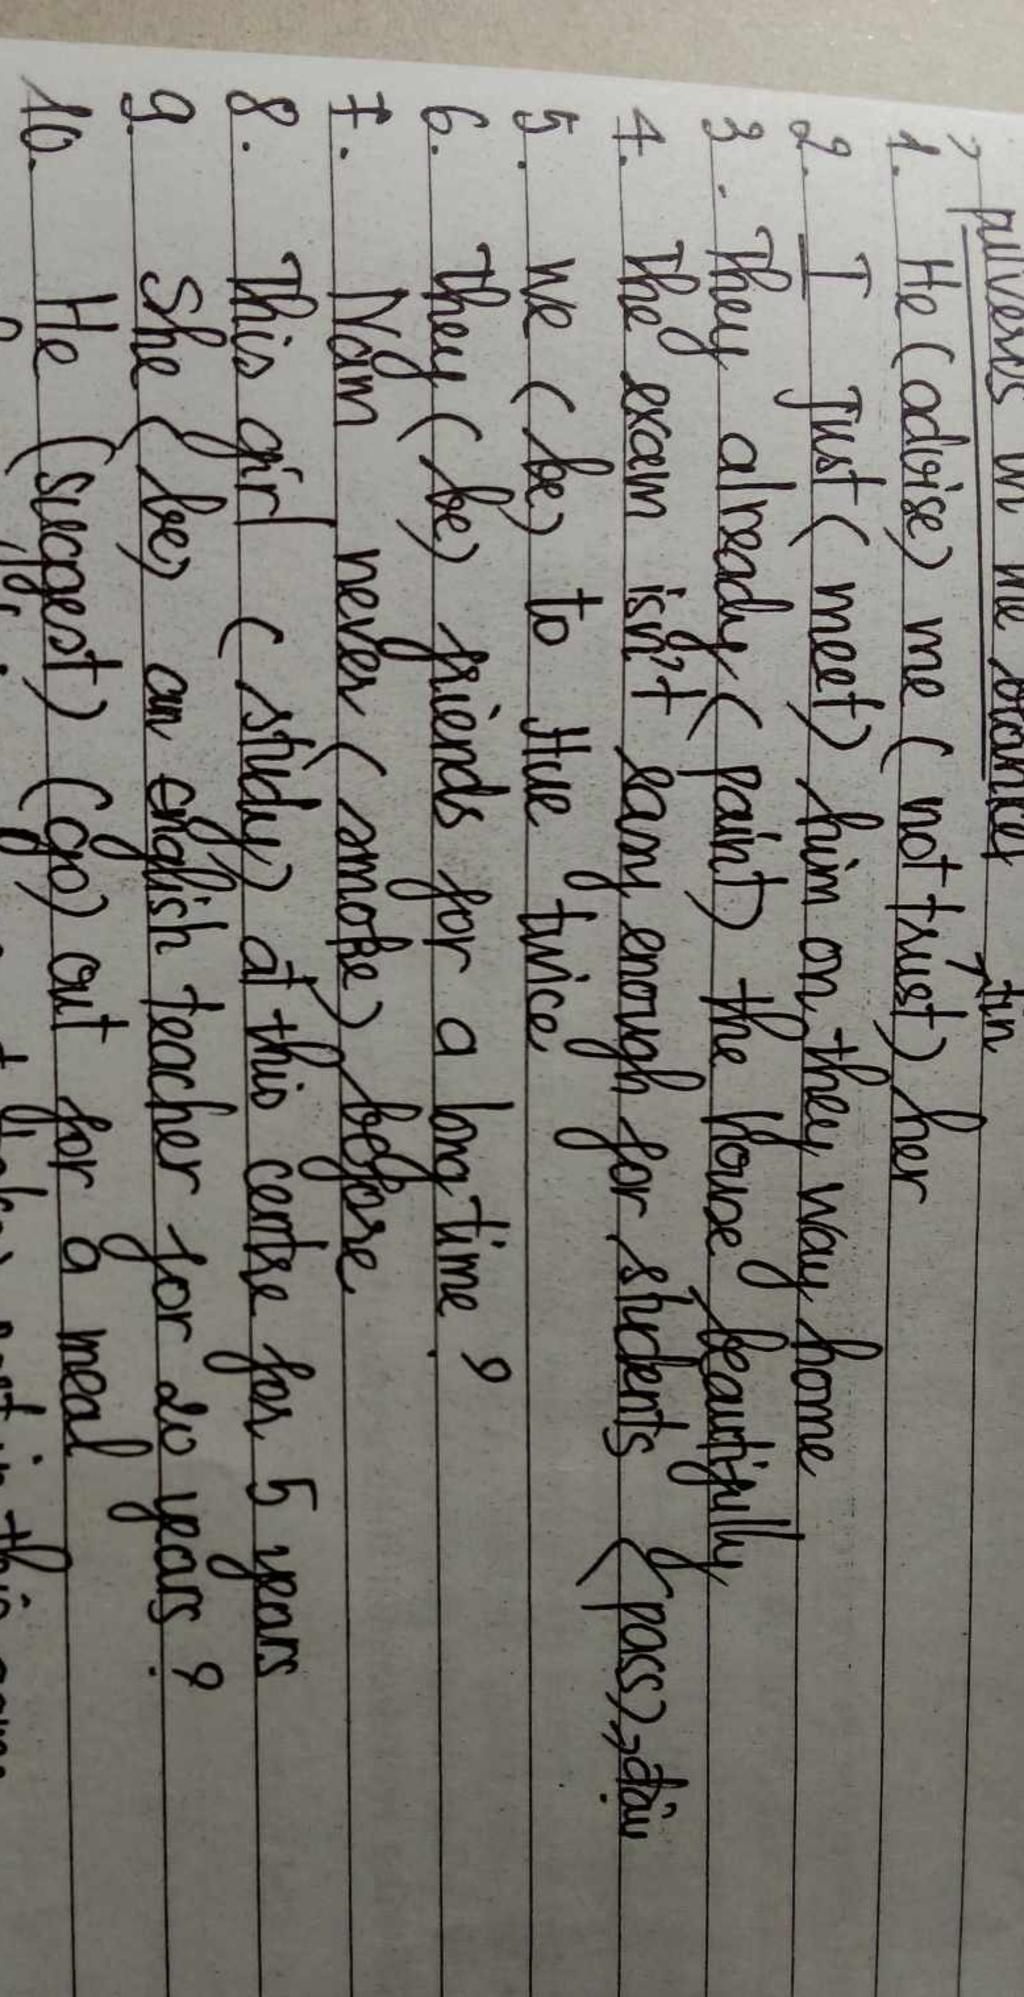 put verbs in the bracket
tin
1. He (advise) me (not trust) her
2. I Just (meet) him on they way home
3. They already (paint) the house beautifully
4. The exam isn't easy enough for students (pass) → đậu
5. We (be) to Hue twice
6. They (be) friends for a long time ?
7. Nam never (smoke) before
8. This girl (study) at this centre for 5 years
9. She (be) an english teacher for 20 years ?
10. He (sucgest) (go) out for a meal